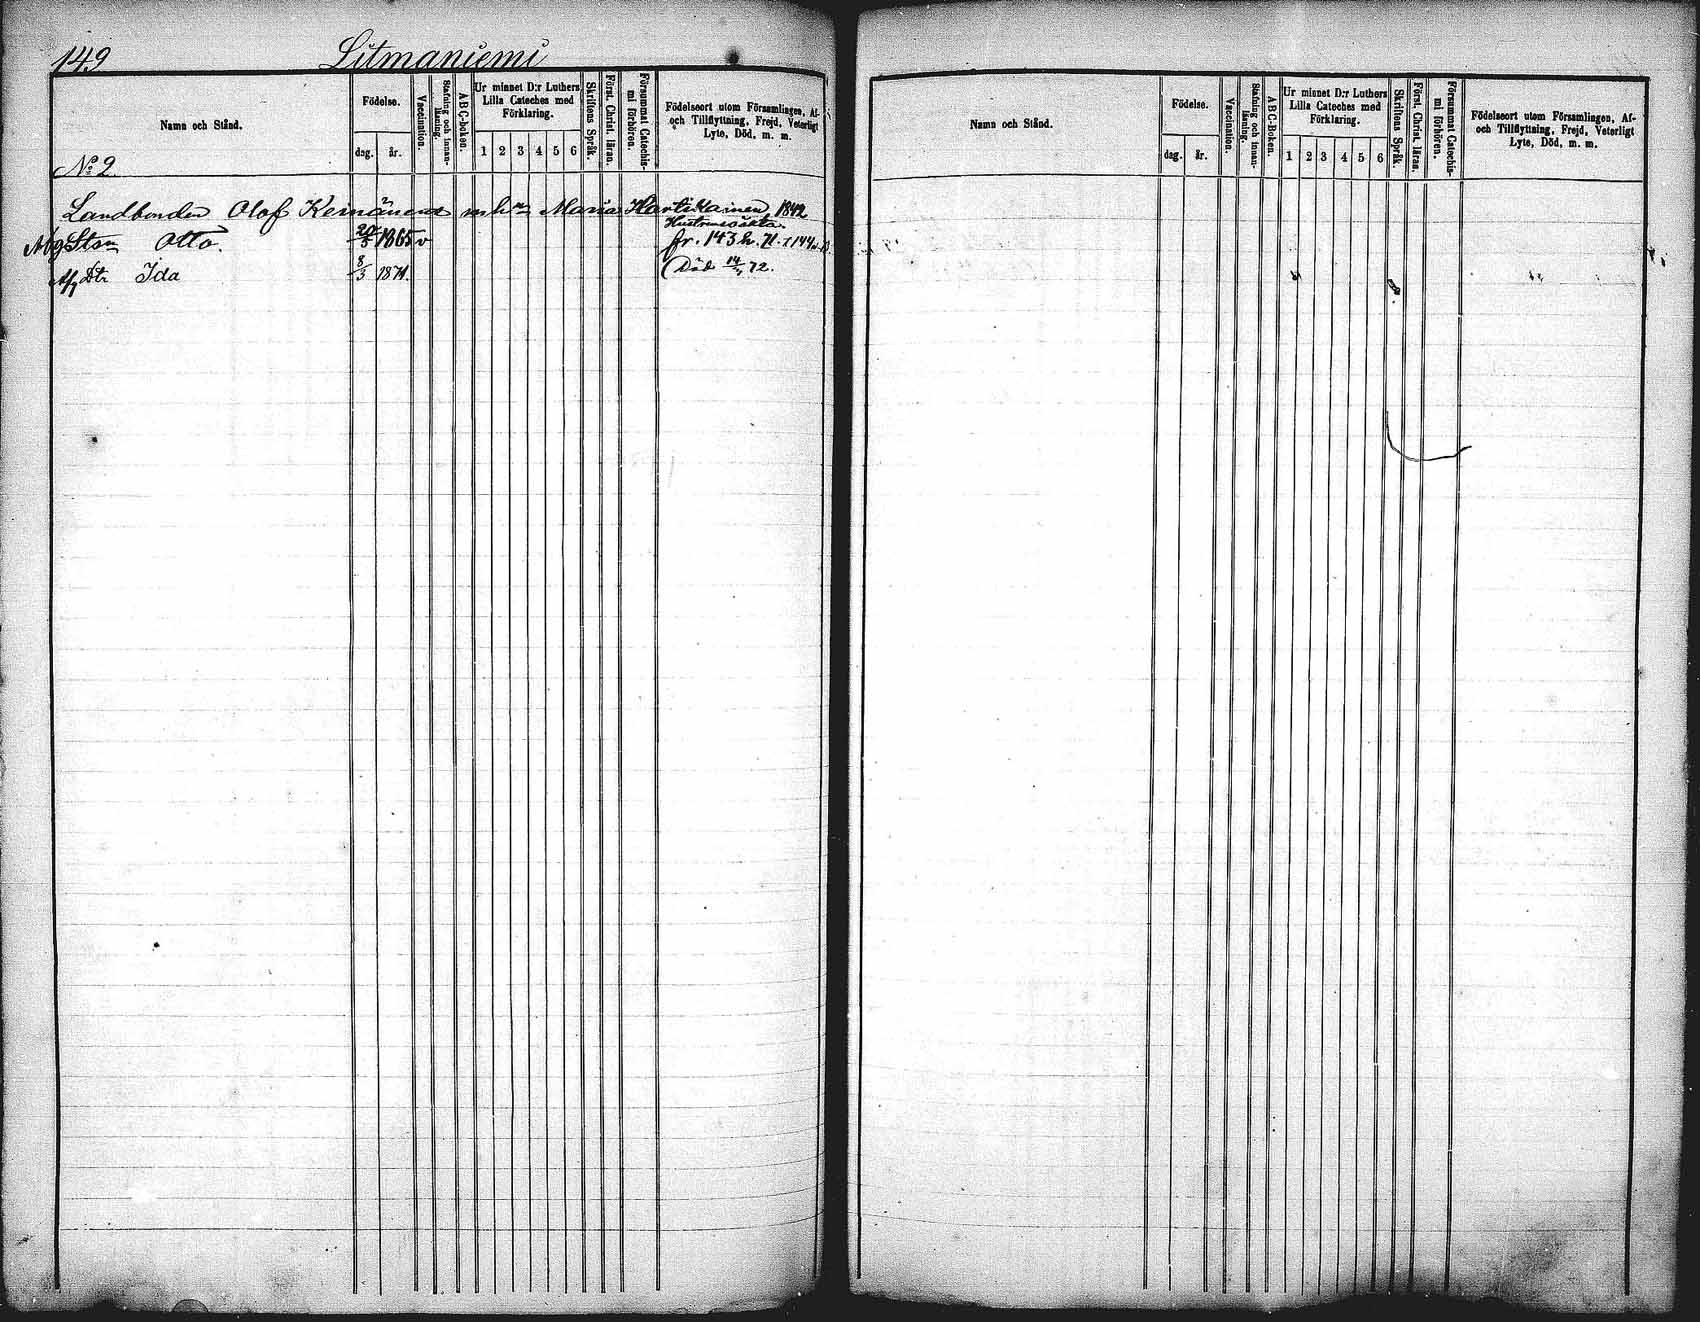 149 Litmaniemi
Namn och Stånd.
Födelse.
dag. år.
Vaccination.
Stafning och innan-läsning.
A B C-boken.
Ur minnet D:r Luthers
Lilla Cateches med
Förklaring.
1 2 3 4 5 6
Skriftens Språk.
Först. Christ. läran.
Försummat Catechis-mi förhören.
Födelseort utom Församlingen, Af-
och Tillflyttning, Frejd, Veterligt
Lyte, Död, m. m.
No 2.
Landbonden Olof Keinänens m hn Maria Hartikainen 1842
Hustruns oäkta
Son Otto. 20/5 1865 v fr. 143 h. 71. t 144
Dtr Ida 8/3 1871. Död 14/ 72.
Namn och Stånd.
Födelse.
dag. år.
Vaccination.
Stafning och innan-läsning.
A B C-Boken.
Ur minnet D:r Luthers
Lilla Cateches med
Förklaring.
1 2 3 4 5 6
Skriftens Språk.
Först. Christ. läran.
Försummat Catechis-mi förhören.
Födelseort utom Församlingen, Af-
och Tillflyttning, Frejd, Veterligt
Lyte, Död, m. m.